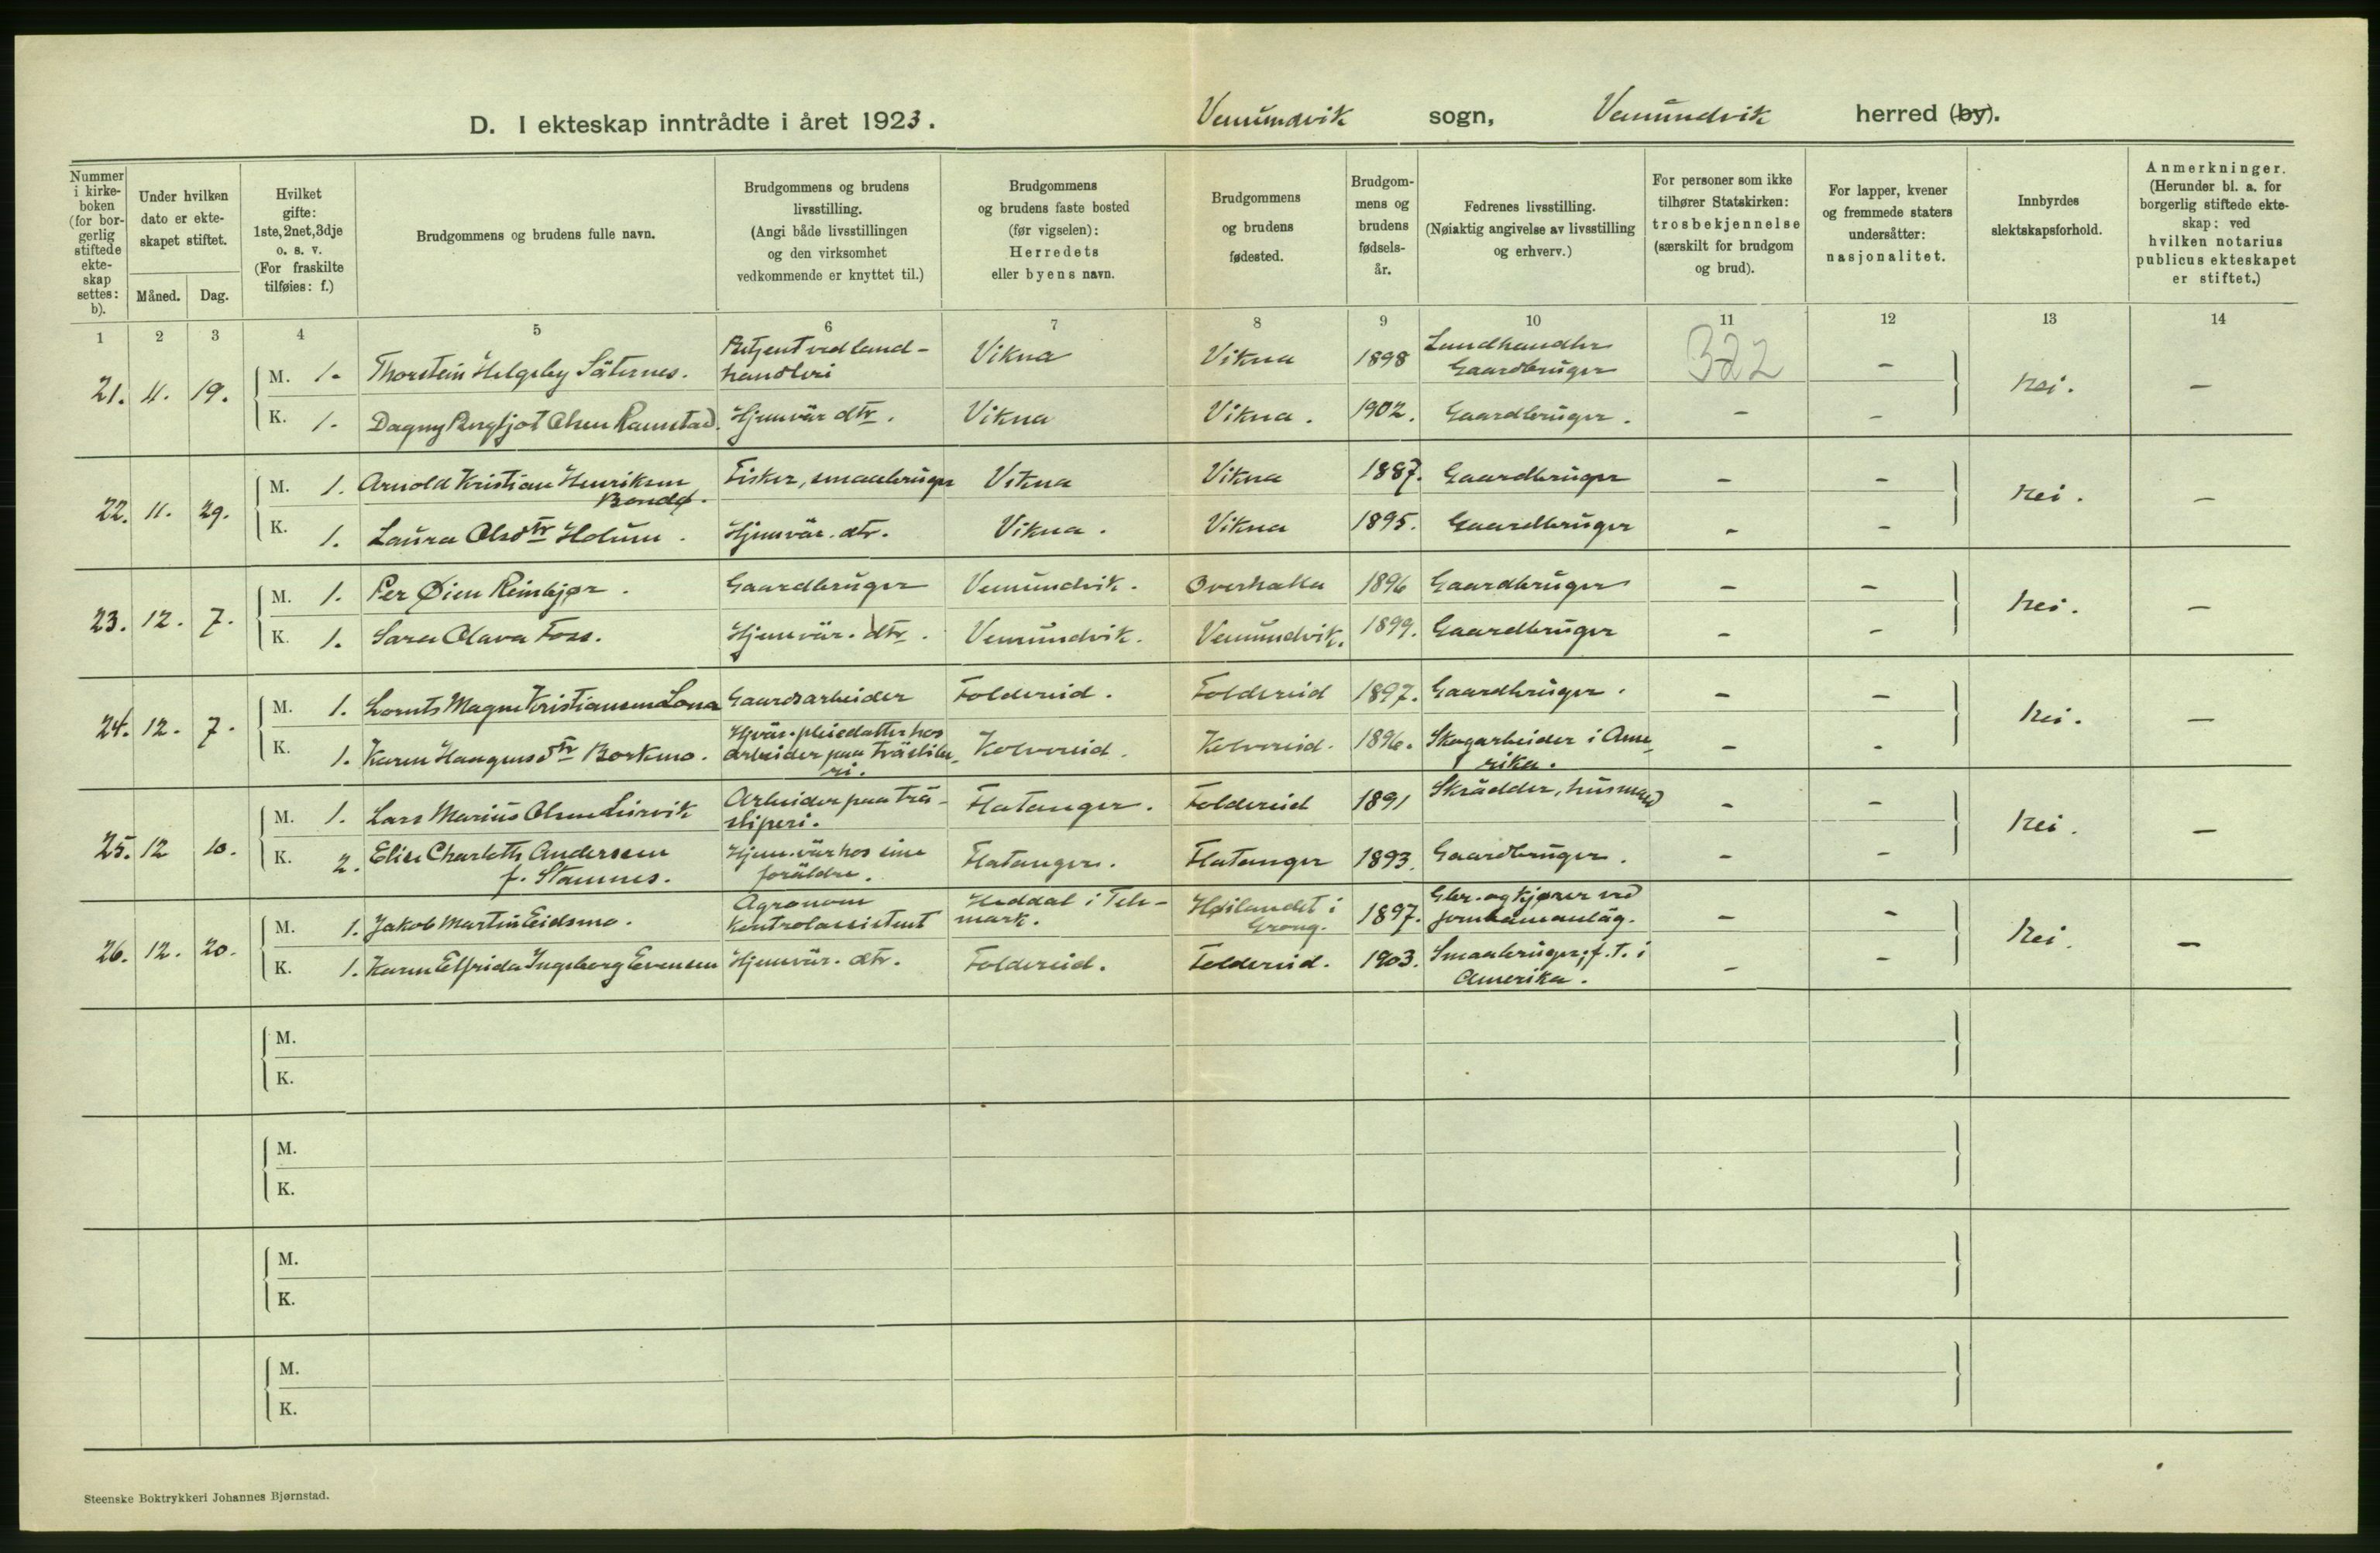 D. I ekteskap inntrådte i året 1923. Vemundvik sogn, Vemundvik herred (by).
Nummer i kirkeboken (for borgerlig stiftede ekteskap settes: b).
Under hvilken dato er ekteskapet stiftet.
Måned. Dag.
Hvilket gifte: 1ste, 2net, 3dje o. s. v. (For fraskilte tilføies: f.)
Brudgommens og brudens fulle navn.
Brudgommens og brudens livsstilling. (Angi både livsstillingen og den virksomhet vedkommende er knyttet til.)
Brudgommens og brudens faste bosted (før vigselen): Herredets eller byens navn.
Brudgommens og brudens fødested.
Brudgommens og brudens fødselsår.
Fedrenes livsstilling. (Nøiaktig angivelse av livsstilling og erhverv.)
For personer som ikke tilhører Statskirken: trosbekjennelse (særskilt for brudgom og brud).
For lapper, kvener og fremmede staters undersåtter: nasjonalitet.
Innbyrdes slektskapsforhold.
Anmerkninger. (Herunder bl. a. for borgerlig stiftede ekteskap: ved hvilken notarius publicus ekteskapet er stiftet.)
1 2 3 4 5 6 7 8 9 10 11 12 13 14
21. 11. 19. M. 1. Thorstein Helgeby Säternes. Betjent ved landhandleri Vikna Vikna 1898 Landhandler Gaardbruger 322 - Nei. -
K. 1. Dagny Bergljot Olsen Ramstad. Hjemvär dtr. Vikna Vikna. 1902. Gaardbruger. - -
22. 11. 29. M. 1. Arnold Kristian Henriksen Bondø. Fisker, smaabruger Vikna Vikna 1887. Gaardbruger - - Nei. -
K. 1. Laura Olsdtr Holum. Hjemvär. dtr. Vikna. Vikna 1895. Gaardbruger - -
23. 12. 7. M. 1. Per Øien Reinbjør. Gaardbruger Vemundvik. Overhalla 1896 Gaardbruger - - Nei. -
K. 1. Sara Olava Foss. Hjemvär. dtr. Vemundvik. Vemundvik. 1899. Gaardbruger - -
24. 12. 7. M. 1. Lornts Magne Kristiansen Lona Gaardsarbeider Foldereid. Foldereid 1897. Gaardbruger. - - Nei. -
K. 1. Karen Haagensdtr Borkmo. Hjvär. pleiedatter hos arbeider paa träsliberi. Kolvereid. Kolvereid. 1896. Skogarbeider i Amerika. - -
25. 12 10. M. 1. Lars Marius Olsen Leirvik Arbeider paa träsliperi. Flatanger. Foldereid 1891 Skrädder, husmand - - Nei. -
K. 2. Elise Charlotte Andersen f. Stamnes. Hjem. vär hos sine foräldre. Flatanger. Flatanger 1893. Gaardbruger. - -
26. 12. 20. M. 1. Jakob Martin Eidsmo. Agronom Kontrolassistent Heddal i Telemark. Høilandet i Grong. 1897. Gbr. og kjører ved jernbaneanläg. - - Nei. -
K. 1. Karen Elfrida Ingeborg Evensen Hjemvär. dtr. Foldereid. Foldereid. 1903. Smaabruger; f. t. i Amerika. - -
M.
K.
M.
K.
M.
K.
M.
K.
Steenske Boktrykkeri Johannes Bjørnstad.